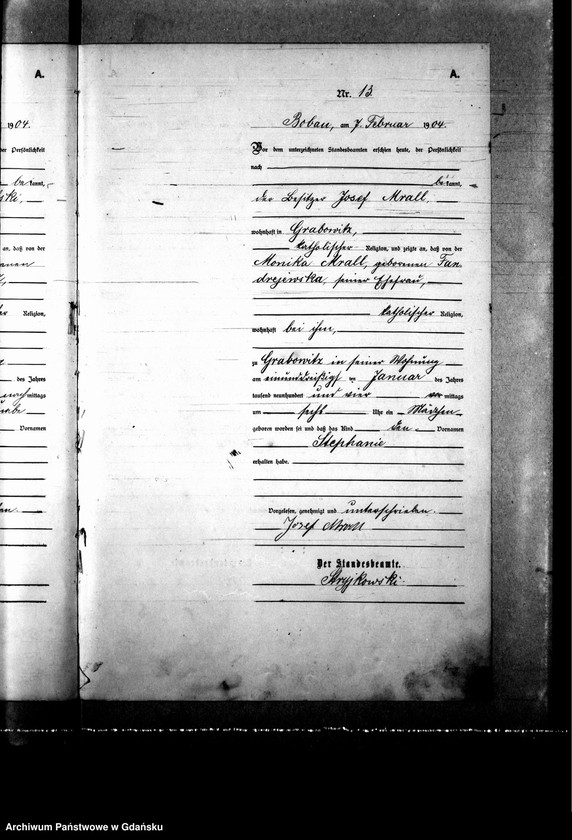 A.
1904.
der Persönlichkeit
be kannt,
ski,
an, daß von der
Religion,
des Jahres
nach mittags
Vornamen
A.
Nr. 13
Bobau, am 7. Februar 1904.
Vor dem unterzeichneten Standesbeamten erschien heute, der Persönlichkeit
nach
be kannt,
der Besitzer Josef Mrall,
wohnhaft in Grabowitz,
katholischer Religion, und zeigte an, daß von der
Monika Mrall, geborenen
seiner Ehefrau,
katholischer Religion,
wohnhaft bei ihm,
zu Grabowitz in seiner Wohnung
am einunddreißigsten Januar des Jahres
tausend neunhundert und vier mittags
am Uhr ein Mädchen
geboren worden sei und daß das Kind den Vornamen
Stephanie
erhalten habe.
Vorgelesen, genehmigt und unterschrieben.
Josef Mrall
Der Standesbeamte.
Stryjkowski.
Archiwum Państwowe w Gdańsku